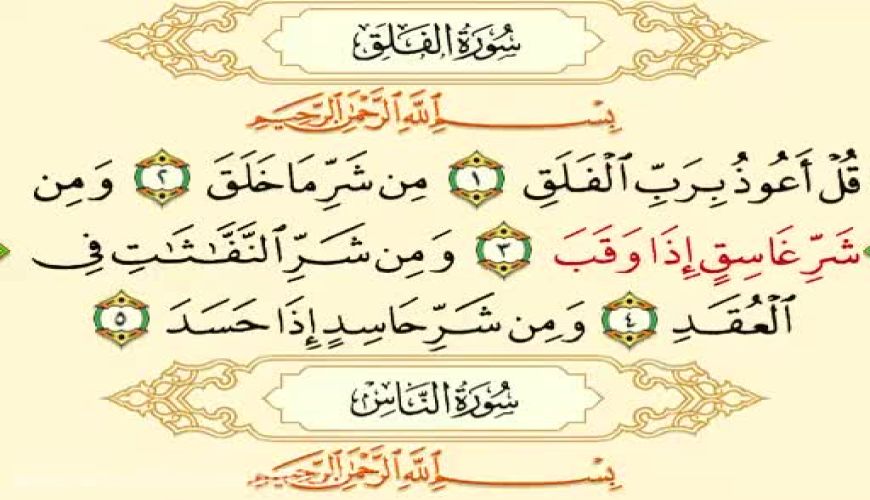 سُورَةُ الفَلَقِ
بِسْمِ ٱللَّهِ ٱلرَّحْمَٰنِ ٱلرَّحِيمِ
قُلْ أَعُوذُ بِرَبِّ ٱلْفَلَقِ ١ مِن شَرِّ مَا خَلَقَ ٢ وَمِن
شَرِّ غَاسِقٍ إِذَا وَقَبَ ٣ وَمِن شَرِّ ٱلنَّفَّٰثَٰتِ فِى
ٱلْعُقَدِ ٤ وَمِن شَرِّ حَاسِدٍ إِذَا حَسَدَ ٥
سُورَةُ النَّاسِ
بِسْمِ ٱللَّهِ ٱلرَّحْمَٰنِ ٱلرَّحِيمِ